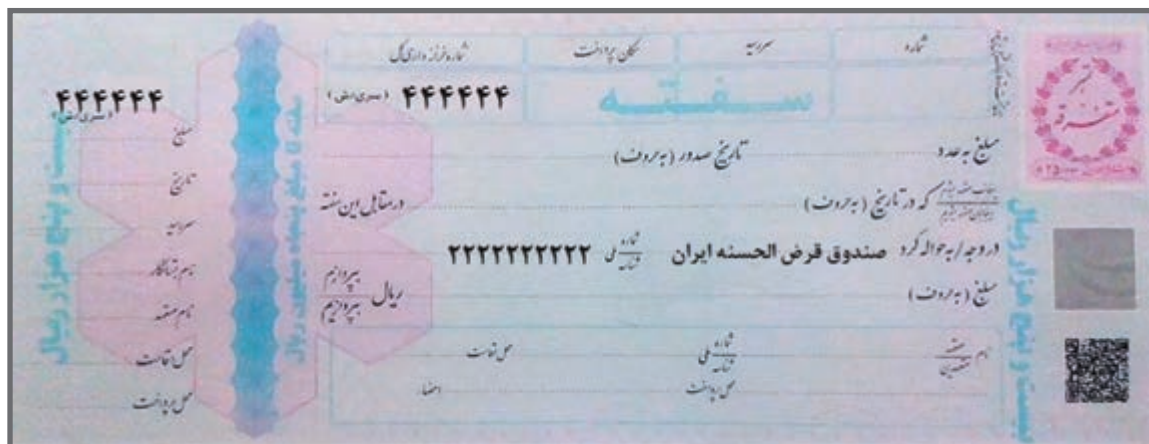 شماره
سررسید
مکان پرداخت
شماره خزانه داری کل
سفته
۴۴۴۴۴۴ (سری/ش)
تمبر
متفرقه
مبلغ به عدد
تاریخ صدور (به حروف)
اینجانب متعهد می‌شوم
اینجانبان متعهد می‌شویم
که در تاریخ (به حروف)
در مقابل این سفته
در وجه / به حواله کرد صندوق قرض الحسنه ایران
شماره ملی
شناسه
۲۲۲۲۲۲۲۲۲۲۲
مبلغ (به حروف)
ریال بپردازم
بپردازیم
نام متعهد
متعهدین
شماره ملی
شناسه
محل اقامت
محل پرداخت
امضاء
بیست و پنج هزار ریال
سفته تا مبلغ پنجاه میلیون ریال
۴۴۴۴۴۴
(سری/ش)
مبلغ
تاریخ
سررسید
نام بستانکار
نام متعهد
محل اقامت
محل پرداخت
بیست و پنج هزار ریال